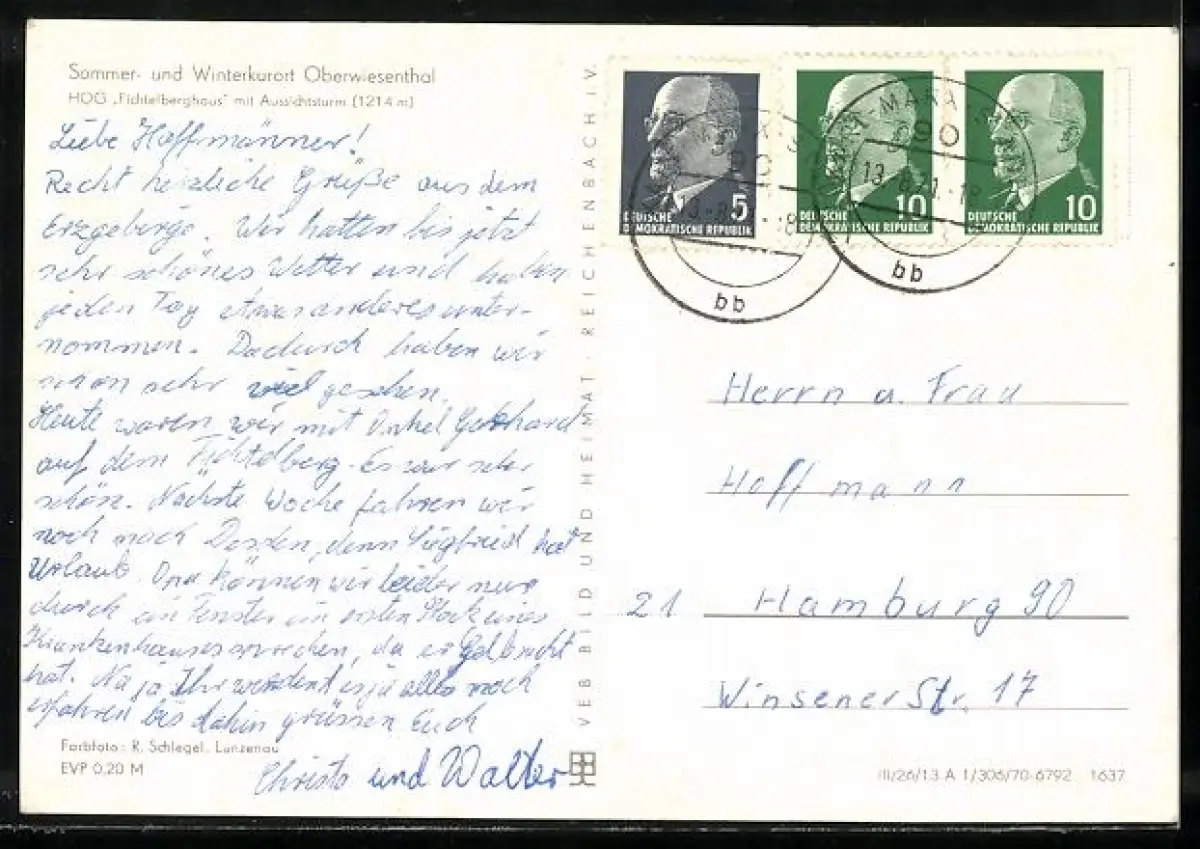 Sommer- und Winterkurort Oberwiesenthal
HOG „Fichtelberghaus" mit Aussichtsturm (1214 m)
Liebe Hoffmänner!
Recht herzliche Grüße aus dem
Erzgebirge. Wir hatten bis jetzt
sehr schönes Wetter und haben
jeden Tag etwas anderes unter-
nommen. Dadurch haben wir
schon sehr viel gesehen.
Heute waren wir mit Onkel Gebhard
auf dem Fichtelberg. Es war sehr
schön. Nächste Woche fahren wir
noch nach Dresden, denn Siegfried hat
Urlaub. Opa können wir leider nur
durch ein Fenster im ersten Stock eines
Krankenhauses sprechen, da er Gelbsucht
hat. Na ja Ihr werdent es ja alles noch
erfahren bis dahin grüssen Euch
Christa und Walter
Farbfoto: R. Schlegel, Lunzenau
EVP 0,20 M
VEB BILD UND HEIMAT · REICHENBACH I. V.
5
DEUTSCHE
DEMOKRATISCHE REPUBLIK
10
DEUTSCHE
DEMOKRATISCHE REPUBLIK
10
DEUTSCHE
DEMOKRATISCHE REPUBLIK
90
bb
90
bb
Herrn u. Frau
Hoffmann
21 Hamburg 90
Winsener Str. 17
III/26/13 A 1/306/70-6792 1637